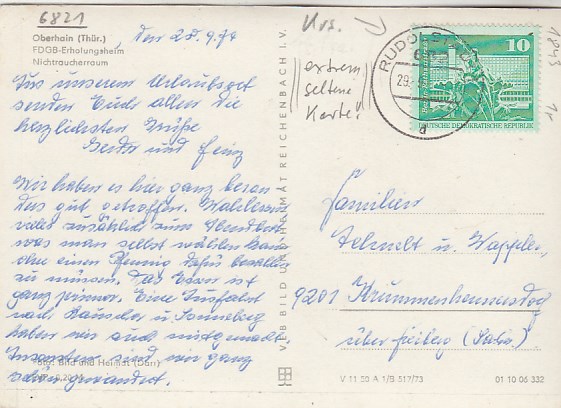 6821
Oberhain (Thür.)
FDGB-Erholungsheim
Nichtraucherraum
Den 28.9.74
Aus unserem Urlaubsort
senden Euch allen die
herzlichsten Grüße
Gerda und Heinz
Wir haben es hier ganz beson
ders gut getroffen. Wahlessen
vieles zusätzlich zum Abendbrot
was man selbst wählen kann
ohne einen Pfennig dafür bezahlen
zu müssen. Das Essen ist
ganz prima. Eine Ausfahrt
nach Lauscha u. Sonneberg
haben wir auch mitgemacht
Ansonsten sind wir ganz
schön gewandert.
Foto: Bild und Heimat (Darr)
0,20 M
VEB BILD UND HEIMAT REICHENBACH I. V.
Urs.
extrem
seltene
Karte!
RUDOLSTADT
29.
a
10
DEUTSCHE DEMOKRATISCHE REPUBLIK
Familien
u. Wappler,
9201 Krummenhennersdorf
über Freiberg (Sachs.)
V 11 50 A 1/B 517/73
01 10 06 332